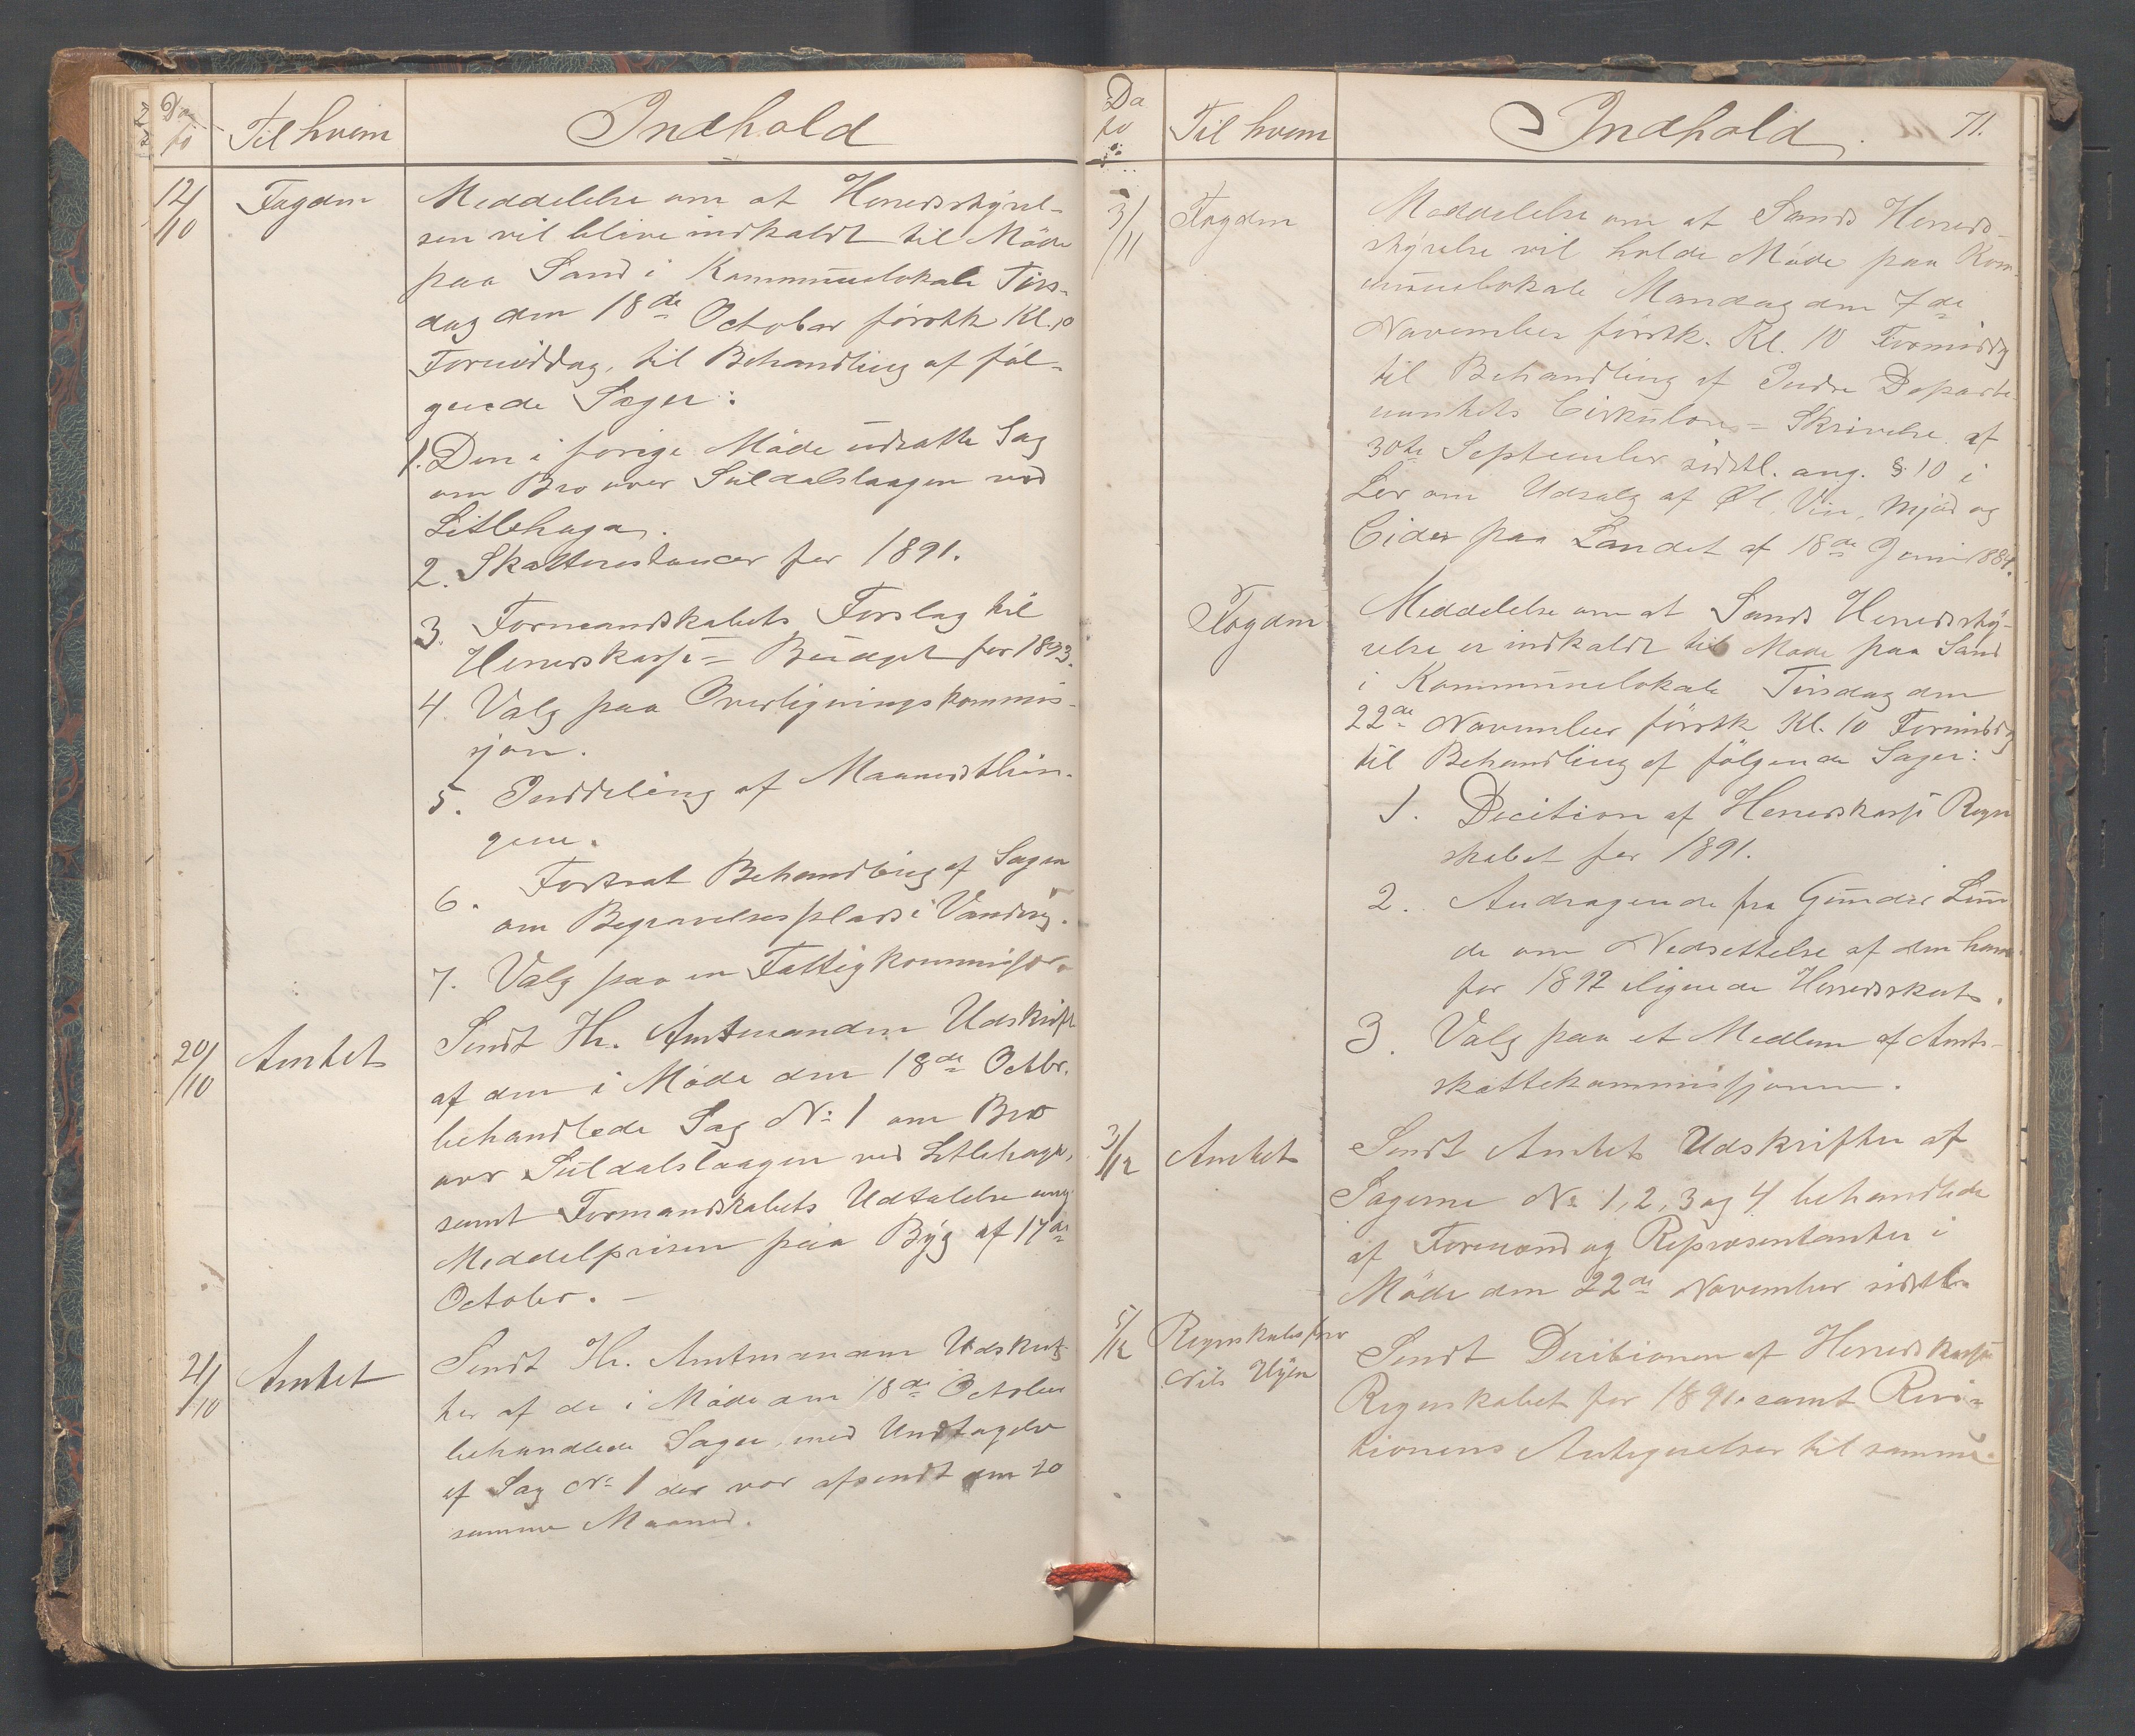 Da
to
Til hvem
Indhold
12/10
Fogden
Meddelelse om at Herredsstyrel-
sen vil blive indkaldt til Möde
paa Sand i Kommunelokale Tirs-
dag den 18de October förstk Kl. 10
Formiddag, til Behandling af föl-
gende Sager:
1. Den i forige Möde udsatte Sag
om Bro over Suldalslaagen ved
Litlehaga.
2. Skatterestancer for 1891.
3. Formandskabets Forslag til
Herredskasse- Budget for 1893.
4. Valg paa Overligningskommis-
sjon.
5. Inddeling af Maanedsthin-
gene.
6. Fortsat Behandling af Sagen
om Begravelsesplads i Vandvig.
7. Valg paa en Fattigkommissær.
20/10
Amtet
Sendt Hr. Amtmanden Udskrift
af den i Möde den 18de Octbr.
behandlede Sag No 1 om Bro
over Suldalslaagen ved Litlehaga,
samt Formandskabets Udtalelse ang.
Meddelprisen paa Byg af 17de
October. -
21/10
Amtet
Sendt Hr. Amtmanden Udskrif-
ter af de i Möde den 18de October
behandlede Sager, med Undtagelse
af Sag No 1 der var afsendt den 20
samme Maaned.
Da
to
Til hvem
Indhold.
71.
3/11
Fogden
Meddelelse om at Sands Herreds-
styrelse vil holde Möde paa Kom-
munelokale Mandag den 7de
November förstk. Kl. 10 Formiddg
til Behandling af Indre Departe-
mentets Cirkulære- Skrivelse af
30te September sidstl. ang. § 10 i
Lov om Udsalg af Øl, Vin, Mjöd og
Cider paa Landet af 18de Juni 1884.
Fogden
Meddelelse om at Sands Herredssty-
relse er indkaldt til Möde paa Sand
i Kommunelokale Tirsdag den
22de November förstk Kl. 10 Formiddg
til Behandling af fölgende Sager:
1. Decition af Herredskasse Regn
skabet for 1891.
2. Andragende fra Gunder Lun
de om Nedsettelse af den ham
for 1892 ilignede Herredsskat.
3. Valg paa et Medlem af Amts-
skattekommissjonen.
3/12
Amtet
Sendt Amtet Udskrifter af
Sagerne No 1, 2, 3 og 4 behandlede
af Formænd og Repræsentanter i
Möde den 22de November sidstl.
5/12
Regnskabsförer
Nils
Sendt Decitionen af Herredskasse
Regnskabet for 1891. samt Revi-
tionens Antegnelser til samme.